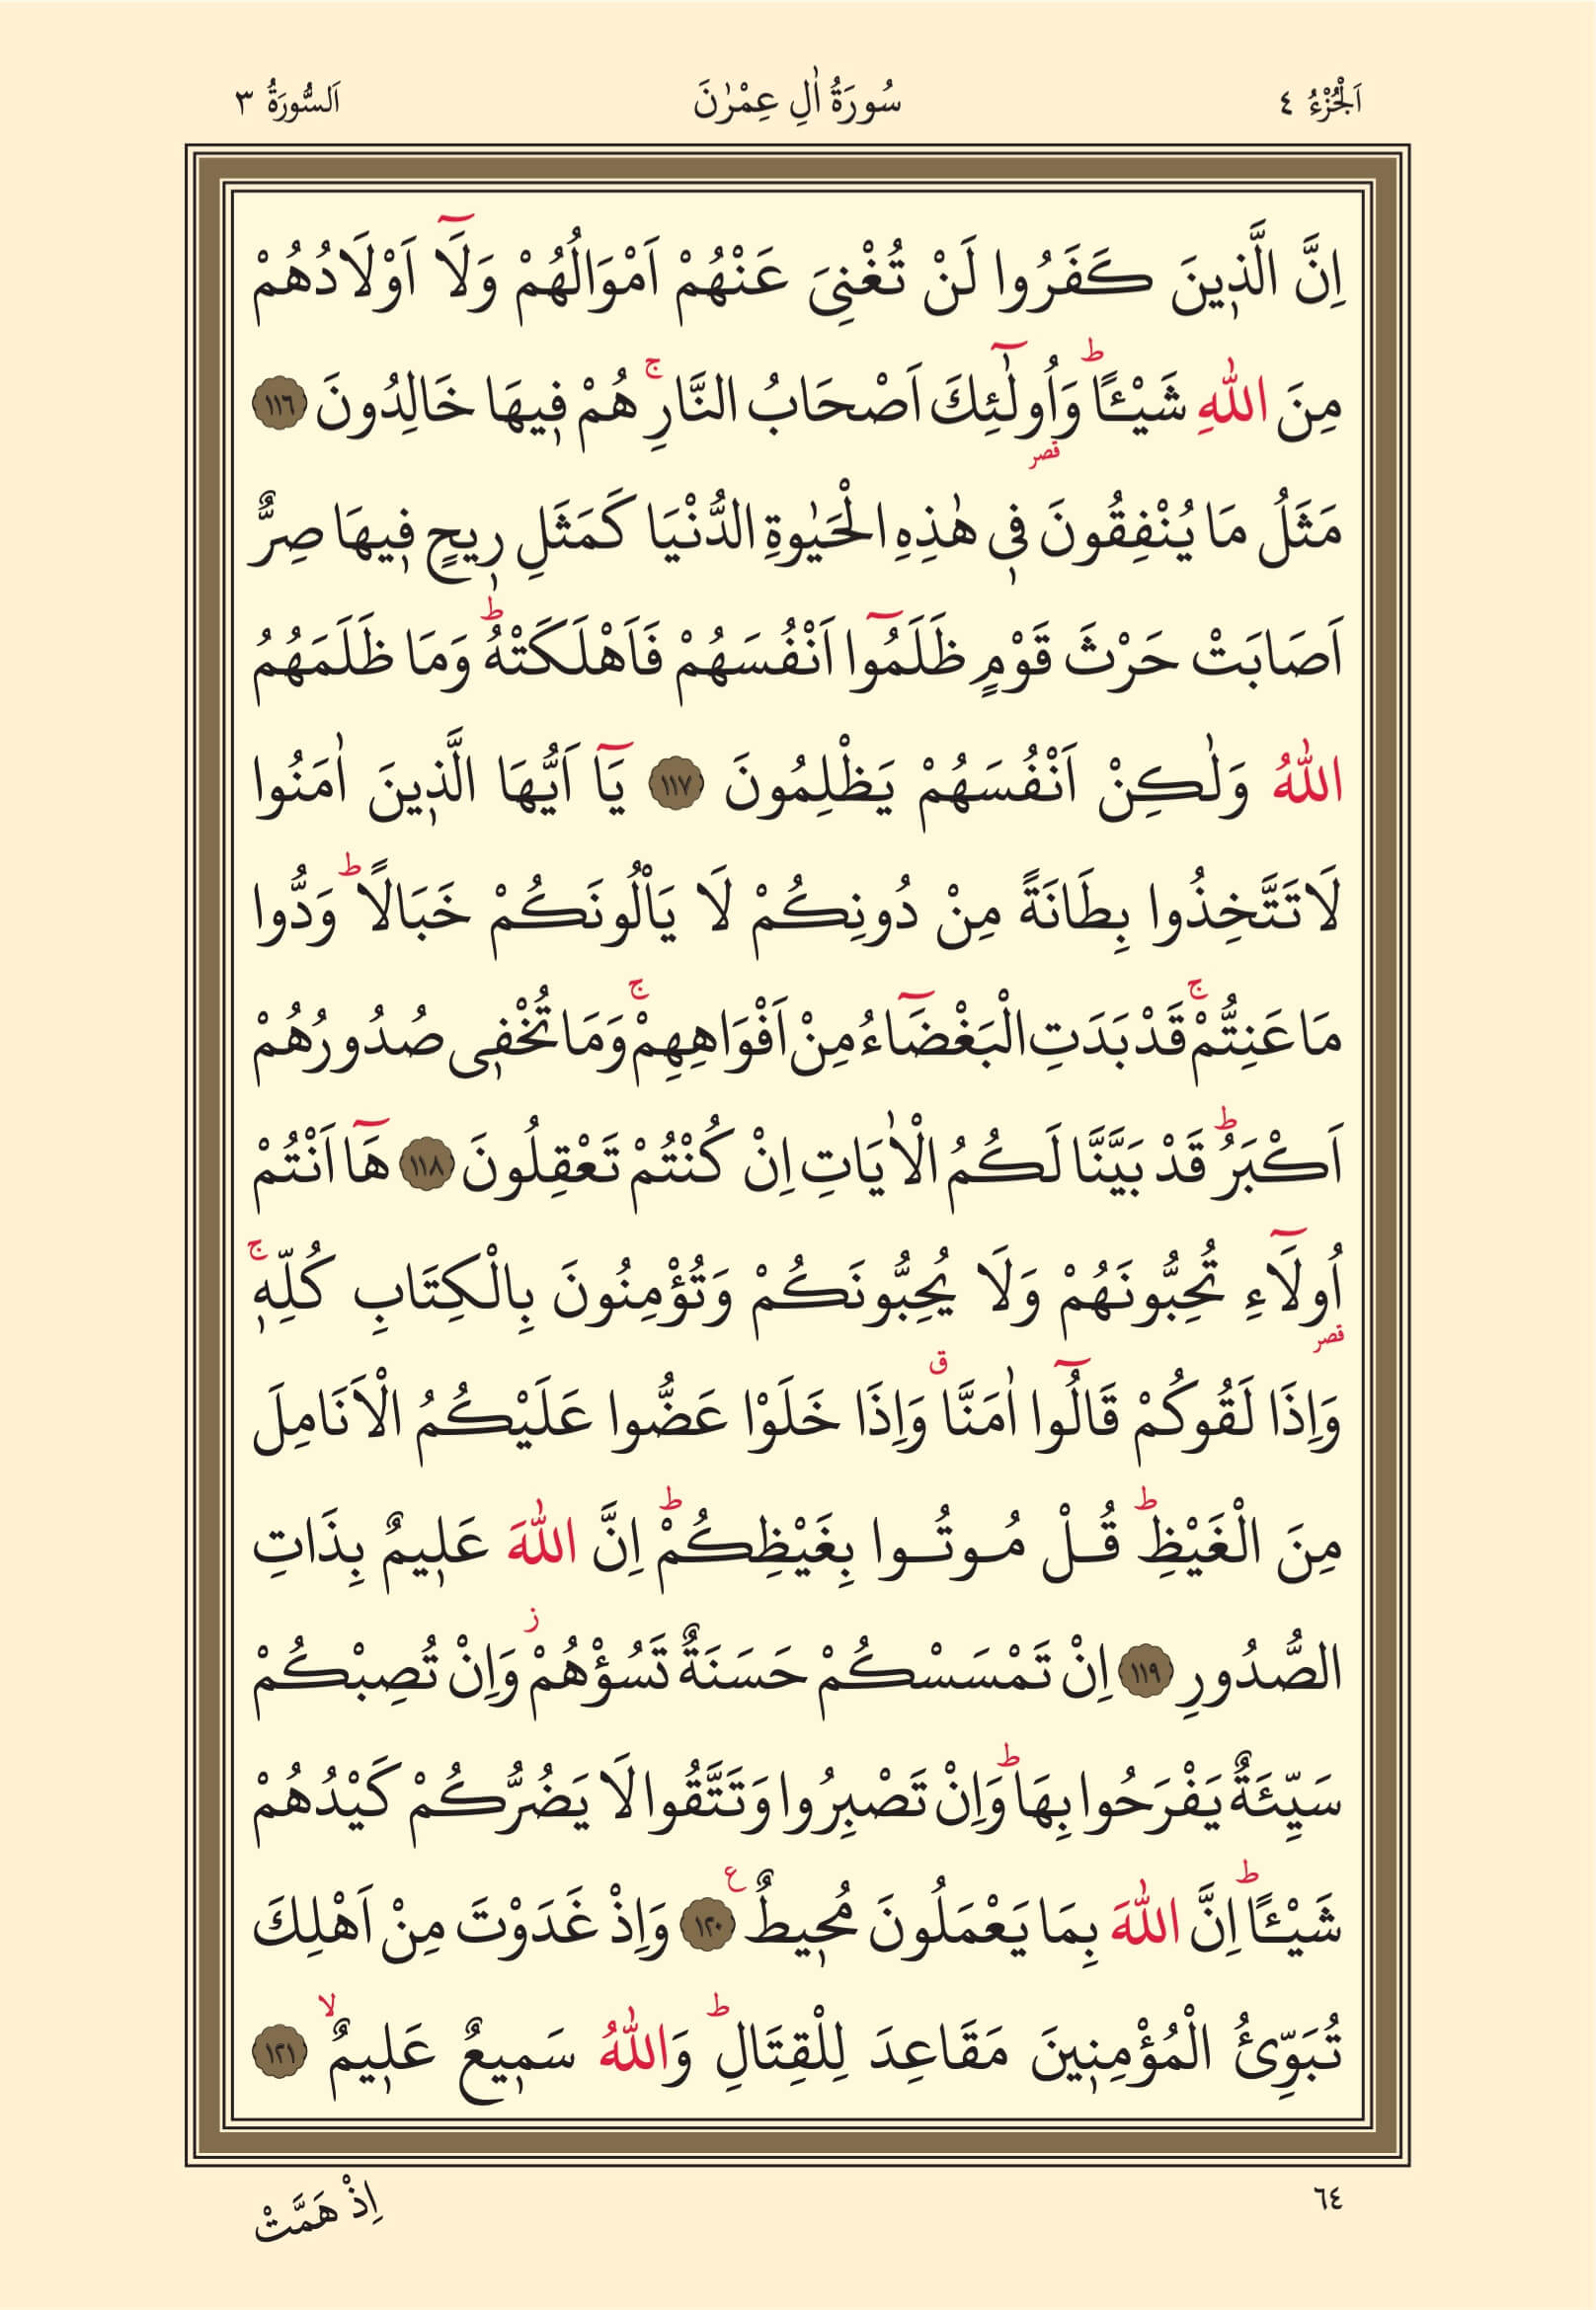 اَلْجُزْءُ ٤ سُورَةُ اٰلِ عِمْرٰنَ اَلسُّورَةُ ٣
اِنَّ الَّذ۪ينَ كَفَرُوا لَنْ تُغْنِىَ عَنْهُمْ اَمْوَالُهُمْ وَلَٓا اَوْلَادُهُمْ
مِنَ اللّٰهِ شَيْـًٔاۜ وَاُو۬لٰٓئِكَ اَصْحَابُ النَّارِۚ هُمْ ف۪يهَا خَالِدُونَ ﴿١١٦﴾
قصر
مَثَلُ مَا يُنْفِقُونَ ف۪ى هٰذِهِ الْحَيٰوةِ الدُّنْيَا كَمَثَلِ ر۪يحٍ ف۪يهَا صِرٌّ
اَصَابَتْ حَرْثَ قَوْمٍ ظَلَمُٓوا اَنْفُسَهُمْ فَاَهْلَكَتْهُۜ وَمَا ظَلَمَهُمُ
اللّٰهُ وَلٰكِنْ اَنْفُسَهُمْ يَظْلِمُونَ ﴿١١٧﴾ يَٓا اَيُّهَا الَّذ۪ينَ اٰمَنُوا
لَا تَتَّخِذُوا بِطَانَةً مِنْ دُونِكُمْ لَا يَأْلُونَكُمْ خَبَالًاۜ وَدُّوا
مَا عَنِتُّمْۚ قَدْ بَدَتِ الْبَغْضَٓاءُ مِنْ اَفْوَاهِهِمْۚ وَمَا تُخْف۪ى صُدُورُهُمْ
اَكْبَرُۜ قَدْ بَيَّنَّا لَكُمُ الْاٰيَاتِ اِنْ كُنْتُمْ تَعْقِلُونَ ﴿١١٨﴾ هَٓا اَنْتُمْ
اُولَٓاءِ تُحِبُّونَهُمْ وَلَا يُحِبُّونَكُمْ وَتُؤْمِنُونَ بِالْكِتَابِ كُلِّه۪ۚ
قصر
وَاِذَا لَقُوكُمْ قَالُٓوا اٰمَنَّاۗ وَاِذَا خَلَوْا عَضُّوا عَلَيْكُمُ الْاَنَامِلَ
مِنَ الْغَيْظِۜ قُلْ مُوتُوا بِغَيْظِكُمْۜ اِنَّ اللّٰهَ عَل۪يمٌ بِذَاتِ
الصُّدُورِ ﴿١١٩﴾ اِنْ تَمْسَسْكُمْ حَسَنَةٌ تَسُؤْهُمْۘ وَاِنْ تُصِبْكُمْ
سَيِّئَةٌ يَفْرَحُوا بِهَاۜ وَاِنْ تَصْبِرُوا وَتَتَّقُوا لَا يَضُرُّكُمْ كَيْدُهُمْ
شَيْـًٔاۜ اِنَّ اللّٰهَ بِمَا يَعْمَلُونَ مُح۪يطٌ ع ﴿١٢٠﴾ وَاِذْ غَدَوْتَ مِنْ اَهْلِكَ
تُبَوِّئُ الْمُؤْمِن۪ينَ مَقَاعِدَ لِلْقِتَالِۜ وَاللّٰهُ سَم۪يعٌ عَل۪يمٌۙ ﴿١٢١﴾
٦٤ اِذْ هَمَّتْ